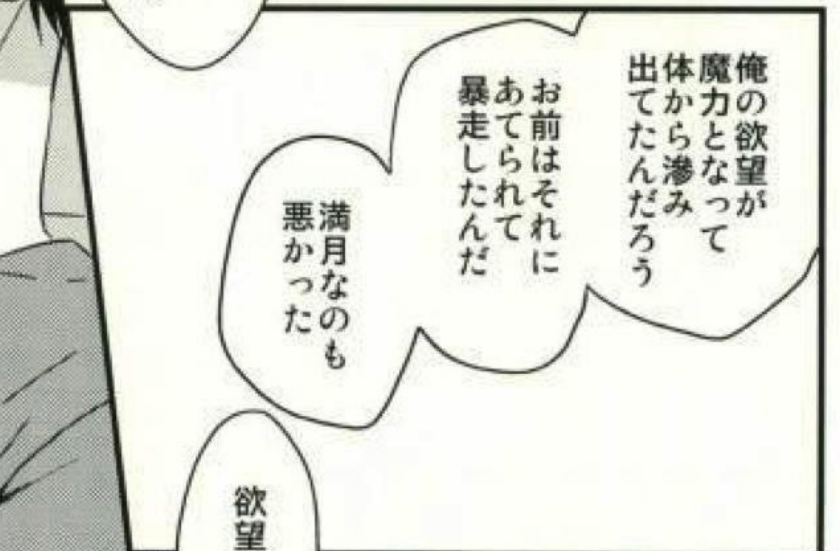 俺の欲望が
魔力となって
体から滲み
出てたんだろう
お前はそれに
あてられて
暴走したんだ
満月なのも
悪かった
欲望